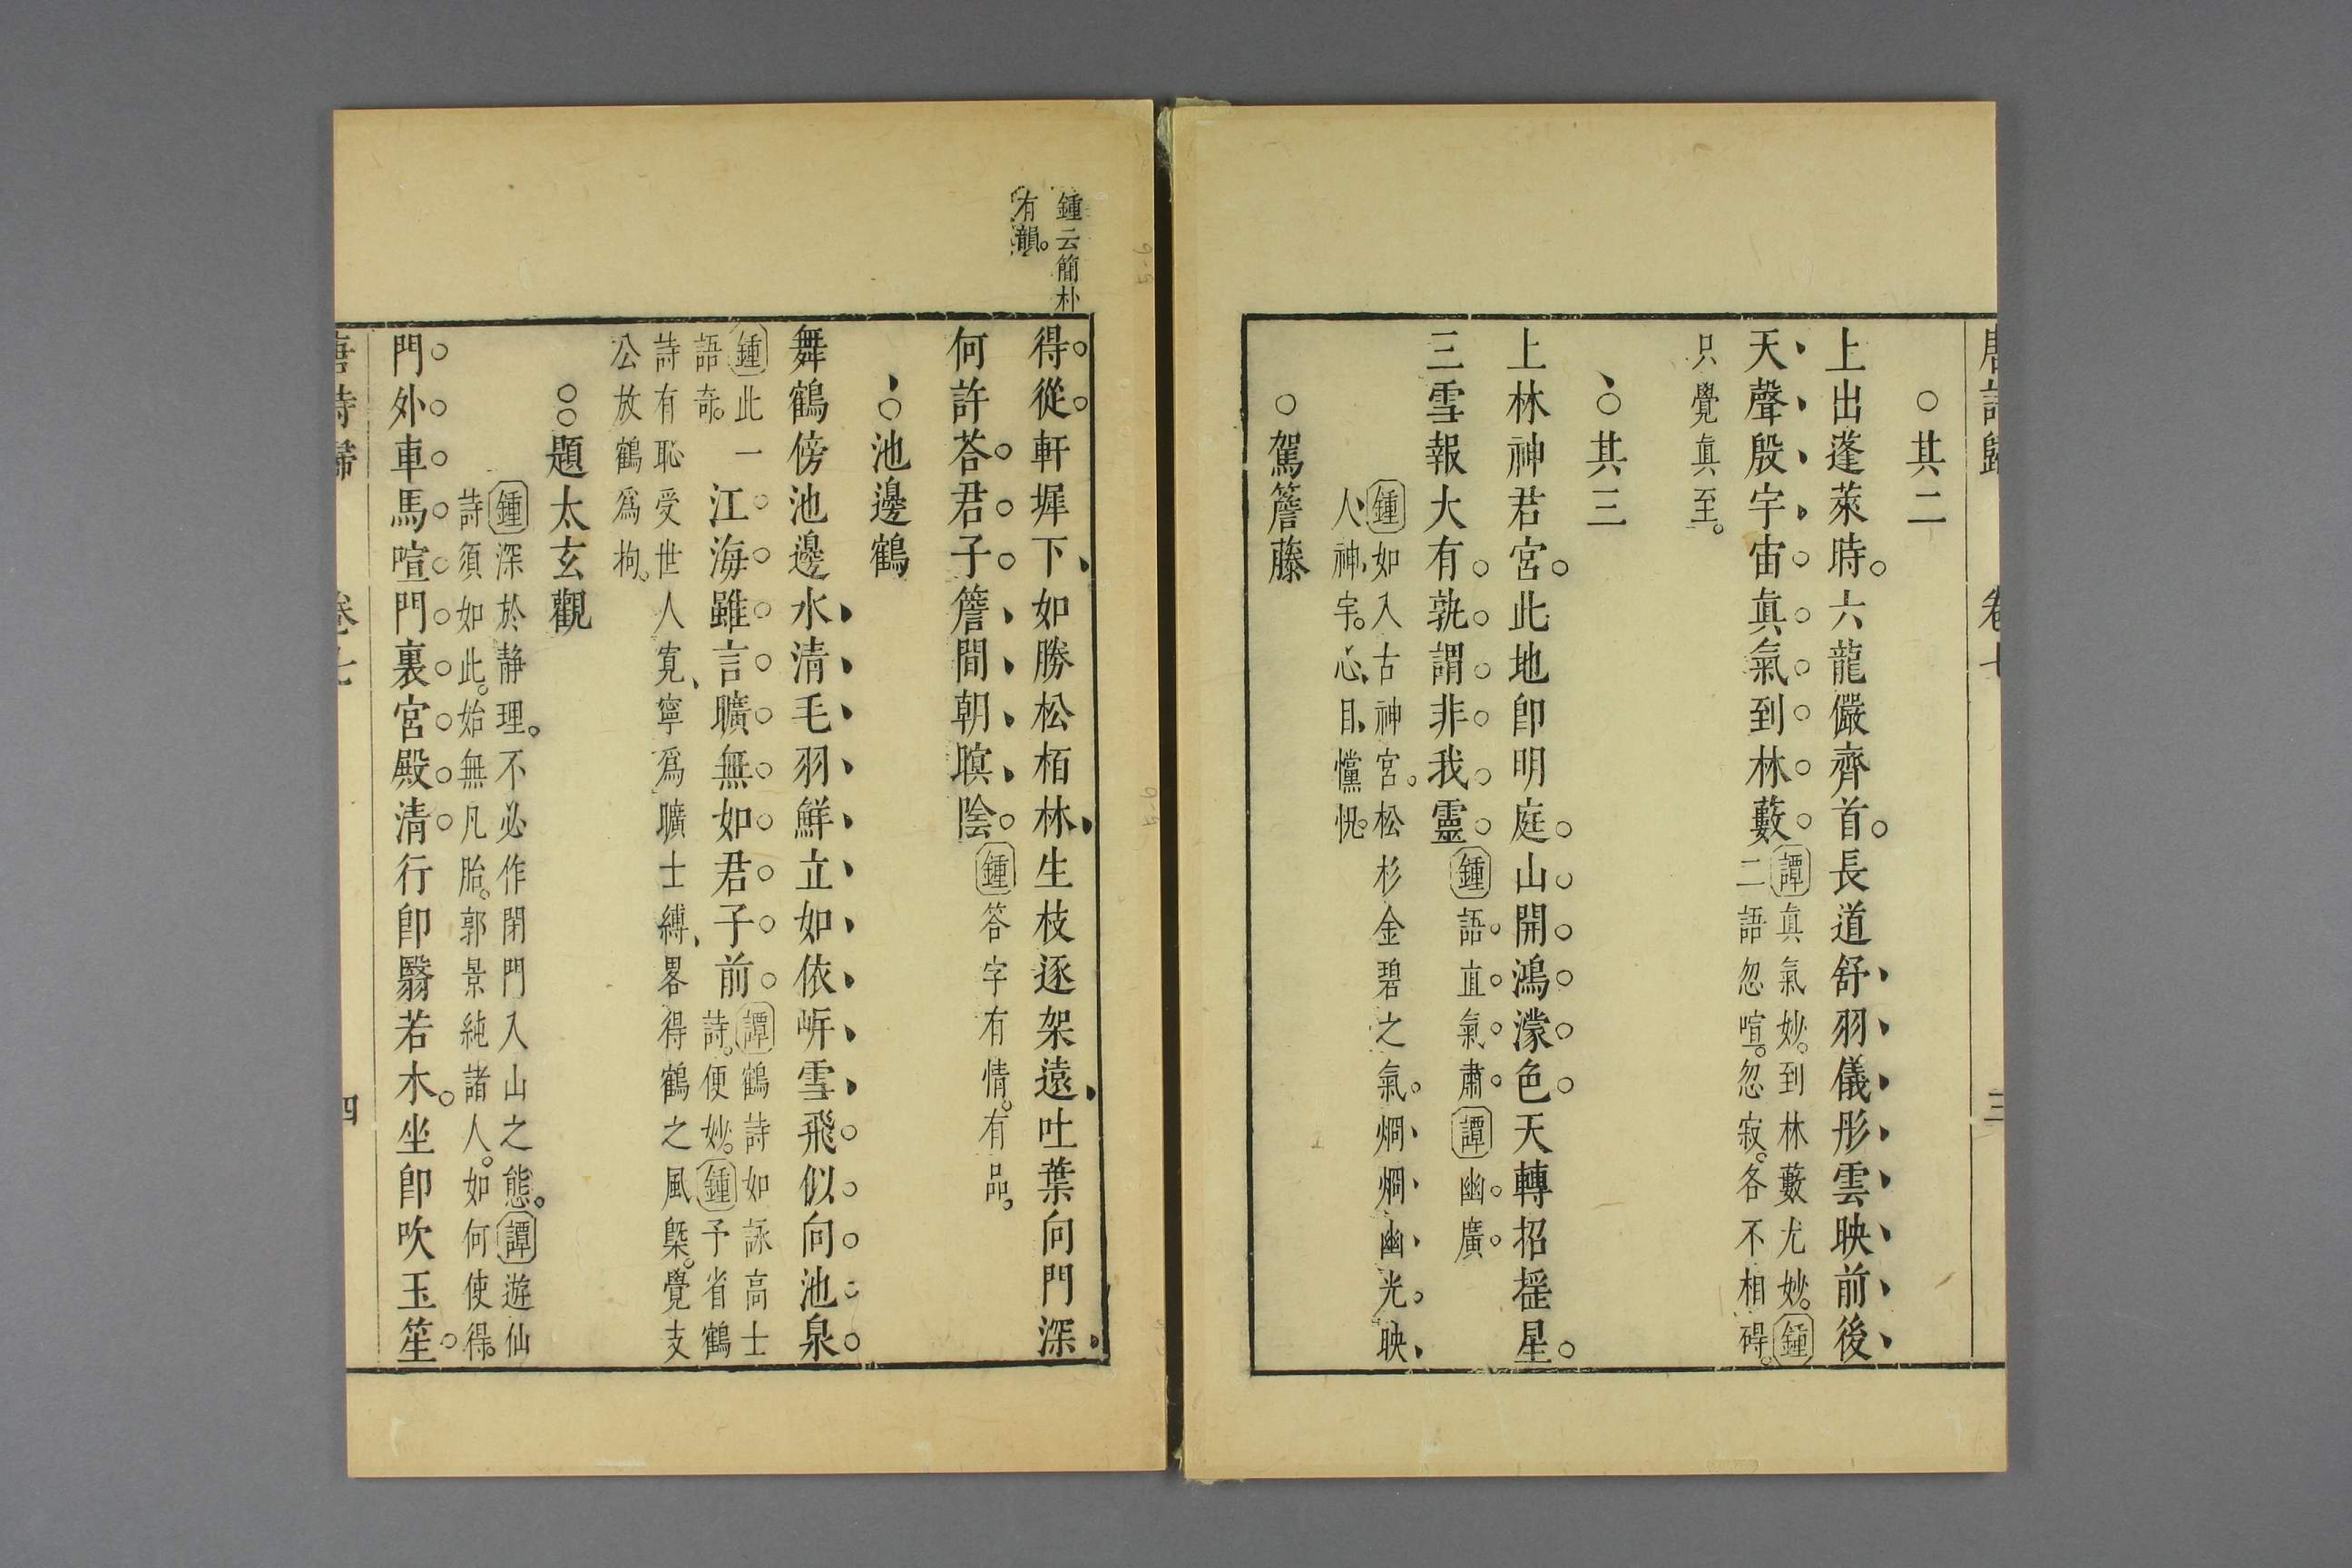 唐詩歸 卷七 三
○其二
上出蓬萊時。六龍儼齊首。長道舒羽儀彤雲映前後
天聲殷宇宙眞氣到林藪
譚眞氣妙。到林藪尤妙。鍾
二語忽喧。忽寂。各不相碍。
只覺眞至。
、○其三
上林神君宮。此地卽明庭。山開鴻濛色。天轉招搖星。
三雪報大有孰謂非我靈
鍾語直氣肅譚幽廣
鍾如入古神宮。松杉金碧之氣。烱烱幽光。映
人、神宇。心、目、懭恍。
○駕簷藤
鍾云簡朴
有韻。
得從軒墀下、如勝松栢林、生枝逐架遠、吐葉向門深、
何許荅君子簷間朝暝陰
鍾答字有情。有品。
、○池邊鶴
舞鶴傍池邊水清毛羽鮮立如依岍雪飛似向池泉
鍾此一
語奇。
江海雖言曠無如君子前
譚鶴詩如詠高士
詩。便妙。鍾予省鶴
詩有恥受世人寬、寧爲曠士縛、畧得鶴之風槩。覺支
公放鶴爲拘。
○○題太玄觀
鍾深於静理。不必作閉門入山之態。譚遊仙
詩須如此。始無凡胎。郭景純諸人。如何使得。
門外車馬喧門裏宮殿清行卽翳若木。坐卽吹玉笙。
唐詩歸 卷七 四